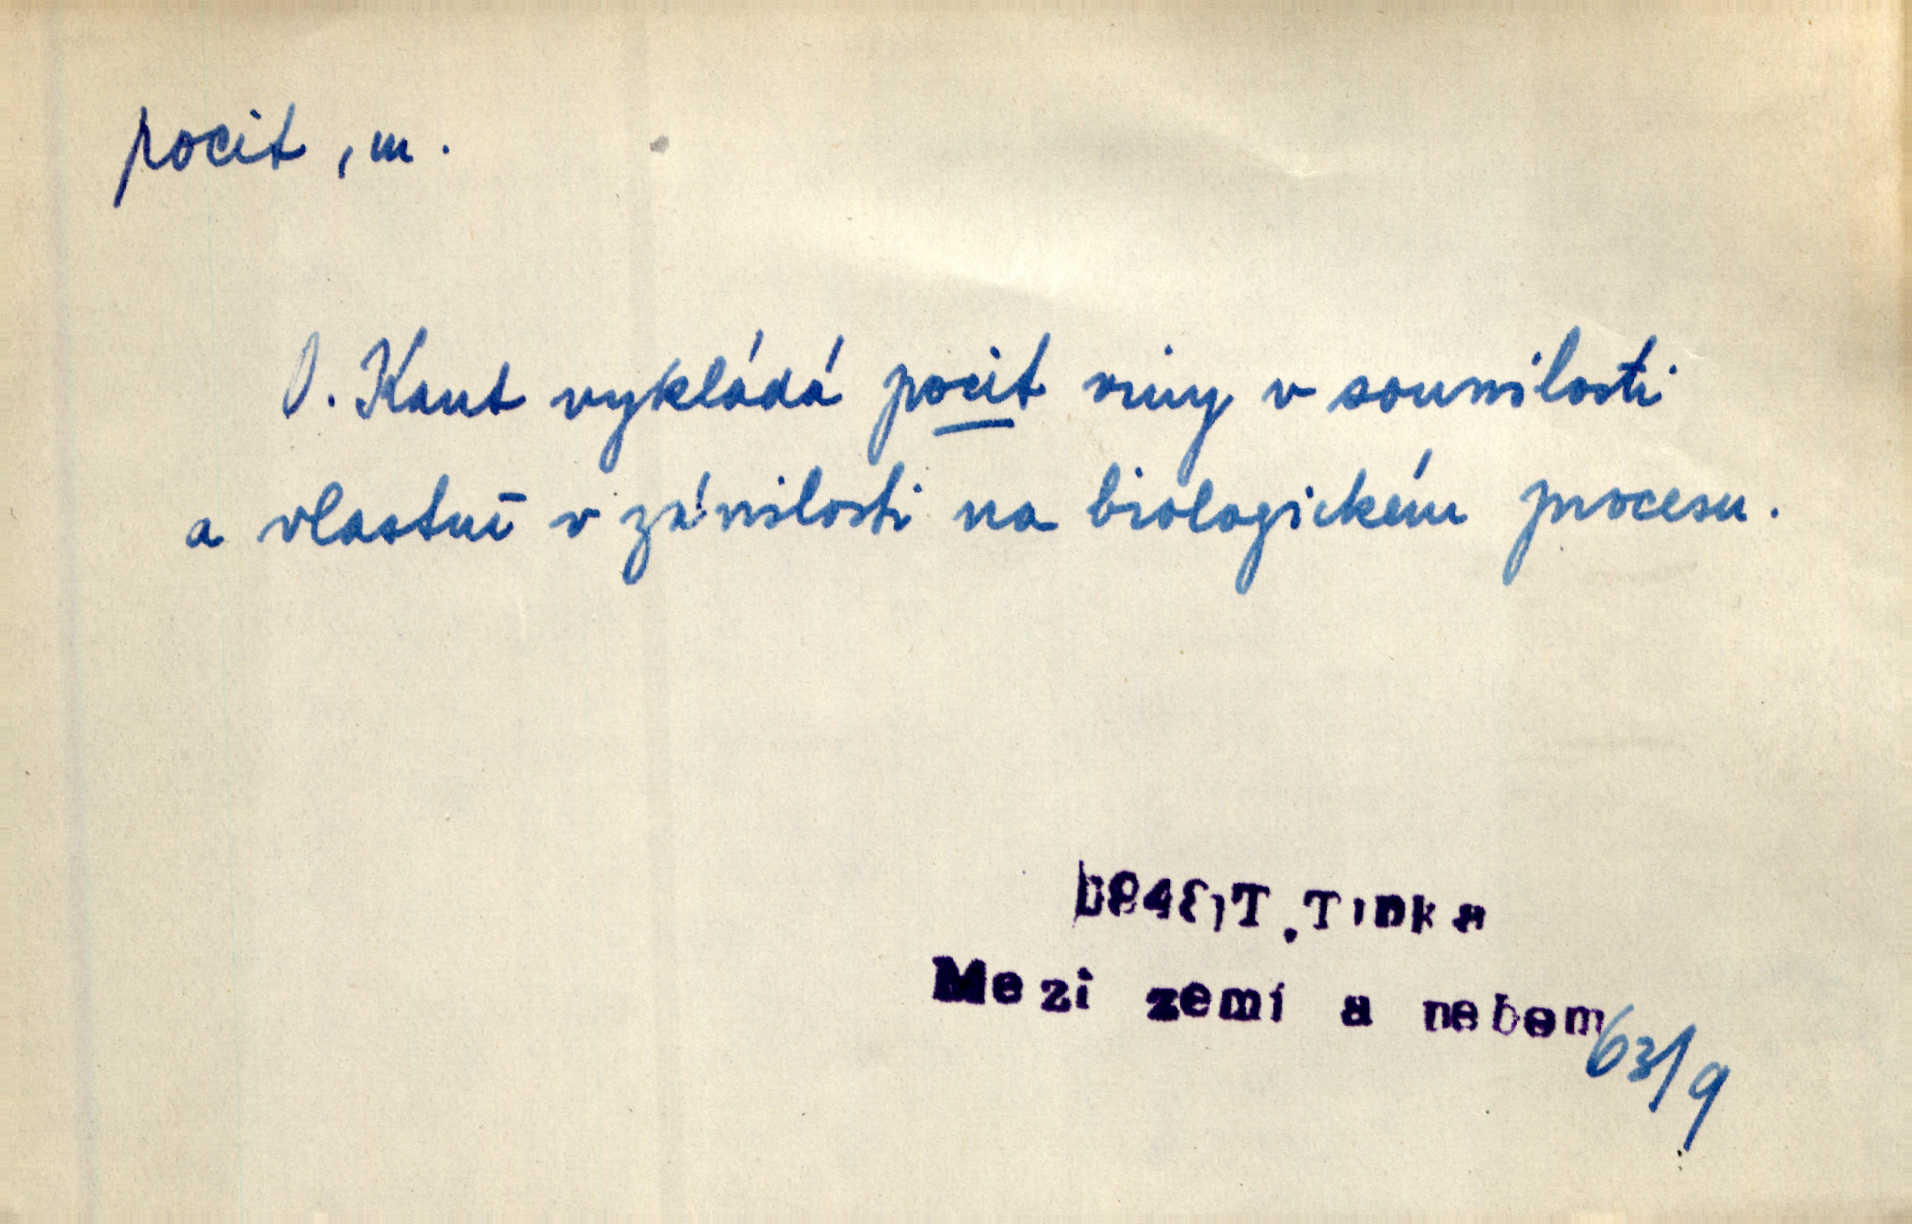 pocit, m.
O. Kaut vykládá pocit viny v souvislosti
a vlastně v závislosti na biologickém procesu.
T. Tinka
Mezi zemí a nebem
63/9